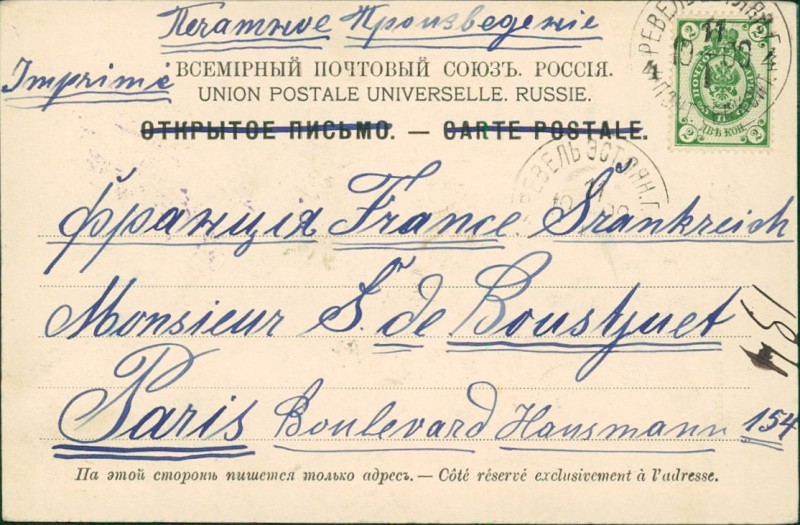 Печатное Произведенiе
Imprimé
ВСЕМIРНЫЙ ПОЧТОВЫЙ СОЮЗЪ. РОССIЯ.
UNION POSTALE UNIVERSELLE. RUSSIE.
ОТКРЫТОЕ ПИСЬМО. — CARTE POSTALE.
РЕВЕЛЬ
11
2 2
2 ДВѢ КОП. 2
РЕВЕЛЬ ЭСТЛЯН. Г.
11
Франція France Frankreich
Monsieur S. de
Paris Boulevard Hausmann 154
154
На этой сторонѣ пишется только адресъ. — Côté réservé exclusivement à l'adresse.